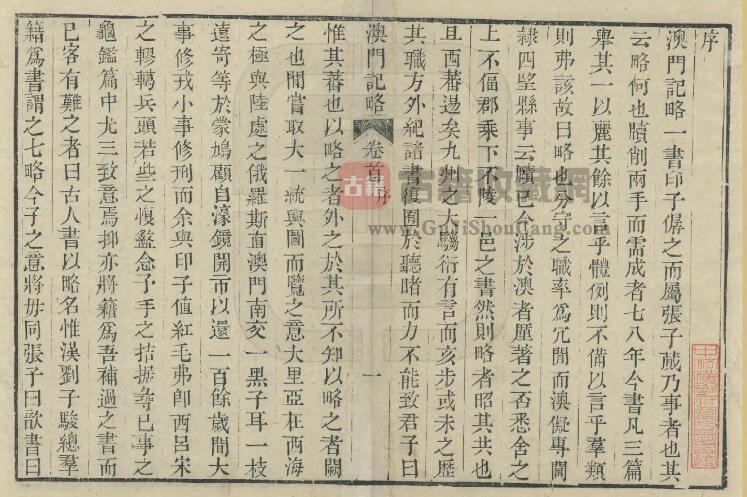 序
澳門記略一書印子僝之而屬張子蕆乃事者也其
云略何也牘削兩手而需成者七八年今書凡三篇
舉其一以麗其餘以言乎體例則不備以言乎羣類
則弗該故曰略也分守之職率爲冗閒而澳儗專閫
隸四望縣事云牘已合涉於澳者厪著之否悉舍之
上不偪郡乘下不陵一邑之書然則略者昭其共也
且西蕃邊矣九州之大騶衍有言而亥步或未之歷
其職方外紀諸書復囿於聽睹而力不能致君子曰
澳門記略 卷首 序 一
惟其蕃也以略之者外之於其所不知以略之者闕
之也閒嘗取大一統輿圖而覽之意大里亞在西海
之極與陸處之俄羅斯直澳門南交一黑子耳一枝
遠寄等於蒙鳩顧自濠鏡開市以還一百餘歲間大
事修戎小事修刑而余與印子值紅毛弗郎西呂宋
之轇轕兵頭若些之愎盭念子手之拮据尋已事之
龜鑑篇中尤三致意焉抑亦將籍爲吾補過之書而
已客有難之者曰古人書以略名惟漢劉子駿總羣
籍爲書謂之七略今子之意將毋同張子曰歆書曰
古籍 古籍收藏網
www.GuJiShouCang.com